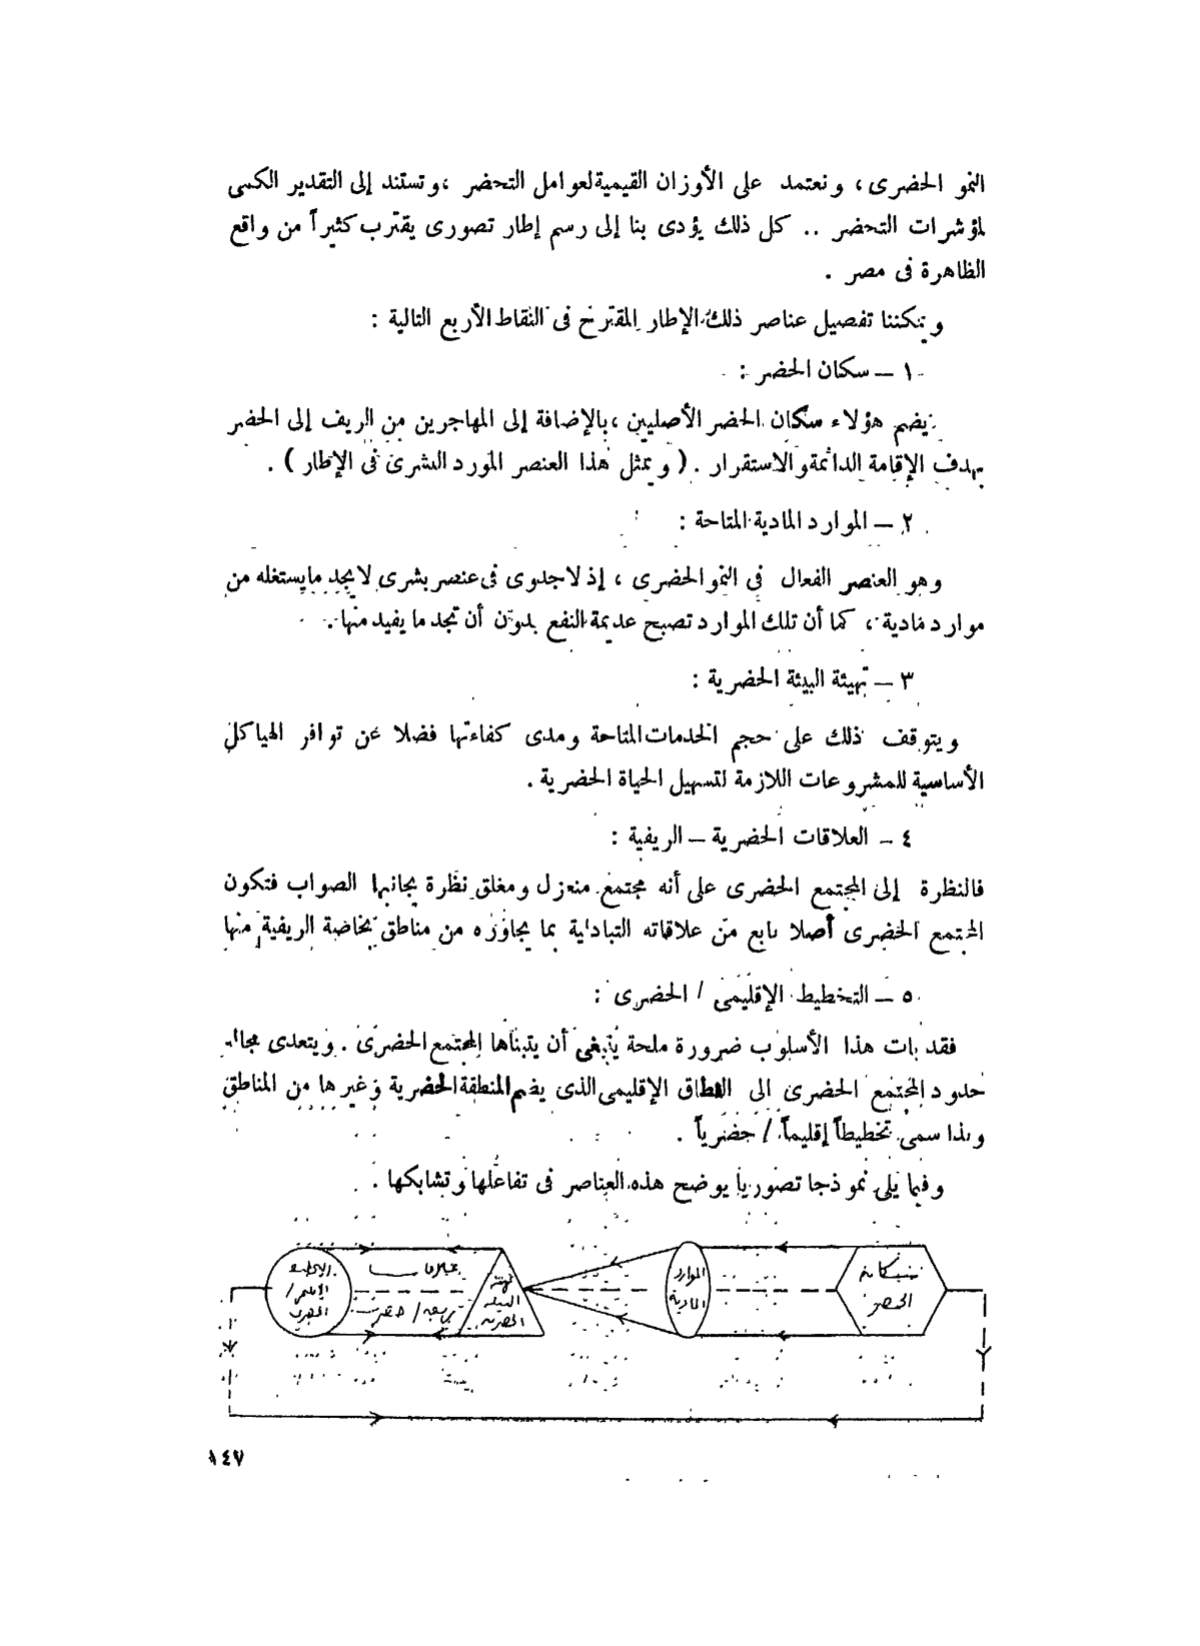 النمو الحضرى ، ونعتمد على الأوزان القيمية لعوامل التحضر ، وتستند إلى التقدير الكمى
لمؤشرات التحضر .. كل ذلك يؤدى بنا إلى رسم إطار تصورى يقترب كثيراً من واقع
الظاهرة فى مصر .
ويمكننا تفصيل عناصر ذلك الإطار المقترح فى النقاط الأربع التالية :
١ – سكان الحضر :
يضم هؤلاء سكان الحضر الأصليين ، بالإضافة إلى المهاجرين من الريف إلى الحضر
بهدف الإقامة الدائمة والاستقرار . ( ويمثل هذا العنصر المورد البشرى فى الإطار ) .
٢ – الموارد المادية المتاحة :
وهو العنصر الفعال فى النمو الحضرى ، إذ لا جدوى فى عنصر بشرى لا يجد ما يستغله من
موارد مادية ، كما أن تلك الموارد تصبح عديمة النفع بدون أن تجد ما يفيد منها .
٣ – تهيئة البيئة الحضرية :
ويتوقف ذلك على حجم الخدمات المتاحة ومدى كفاءتها فضلا عن توافر الهياكل
الأساسية للمشروعات اللازمة لتسهيل الحياة الحضرية .
٤ – العلاقات الحضرية – الريفية :
فالنظرة إلى المجتمع الحضرى على أنه مجتمع منعزل ومغلق نظرة يجانبها الصواب فتكون
المجتمع الحضرى أصلا نابع من علاقاته التبادلية بما يجاوزه من مناطق بخاصة الريفية منها
٥ – التخطيط الإقليمى / الحضرى :
فقد بات هذا الأسلوب ضرورة ملحة ينبغى أن يتبناها المجتمع الحضرى . ويتعدى مجاله
حدود المجتمع الحضرى الى النطاق الإقليمى الذى يضم المنطقة الحضرية وغيرها من المناطق
ولذا سمى تخطيطاً إقليماً / حضرياً .
وفيما يلى نموذجا تصوريا يوضح هذه العناصر فى تفاعلها وتشابكها .
سكان
الحضر
الموارد
المادية
تهيئة
البيئة
الحضرية
علاقات
ريفية / حضرية
١٤٧